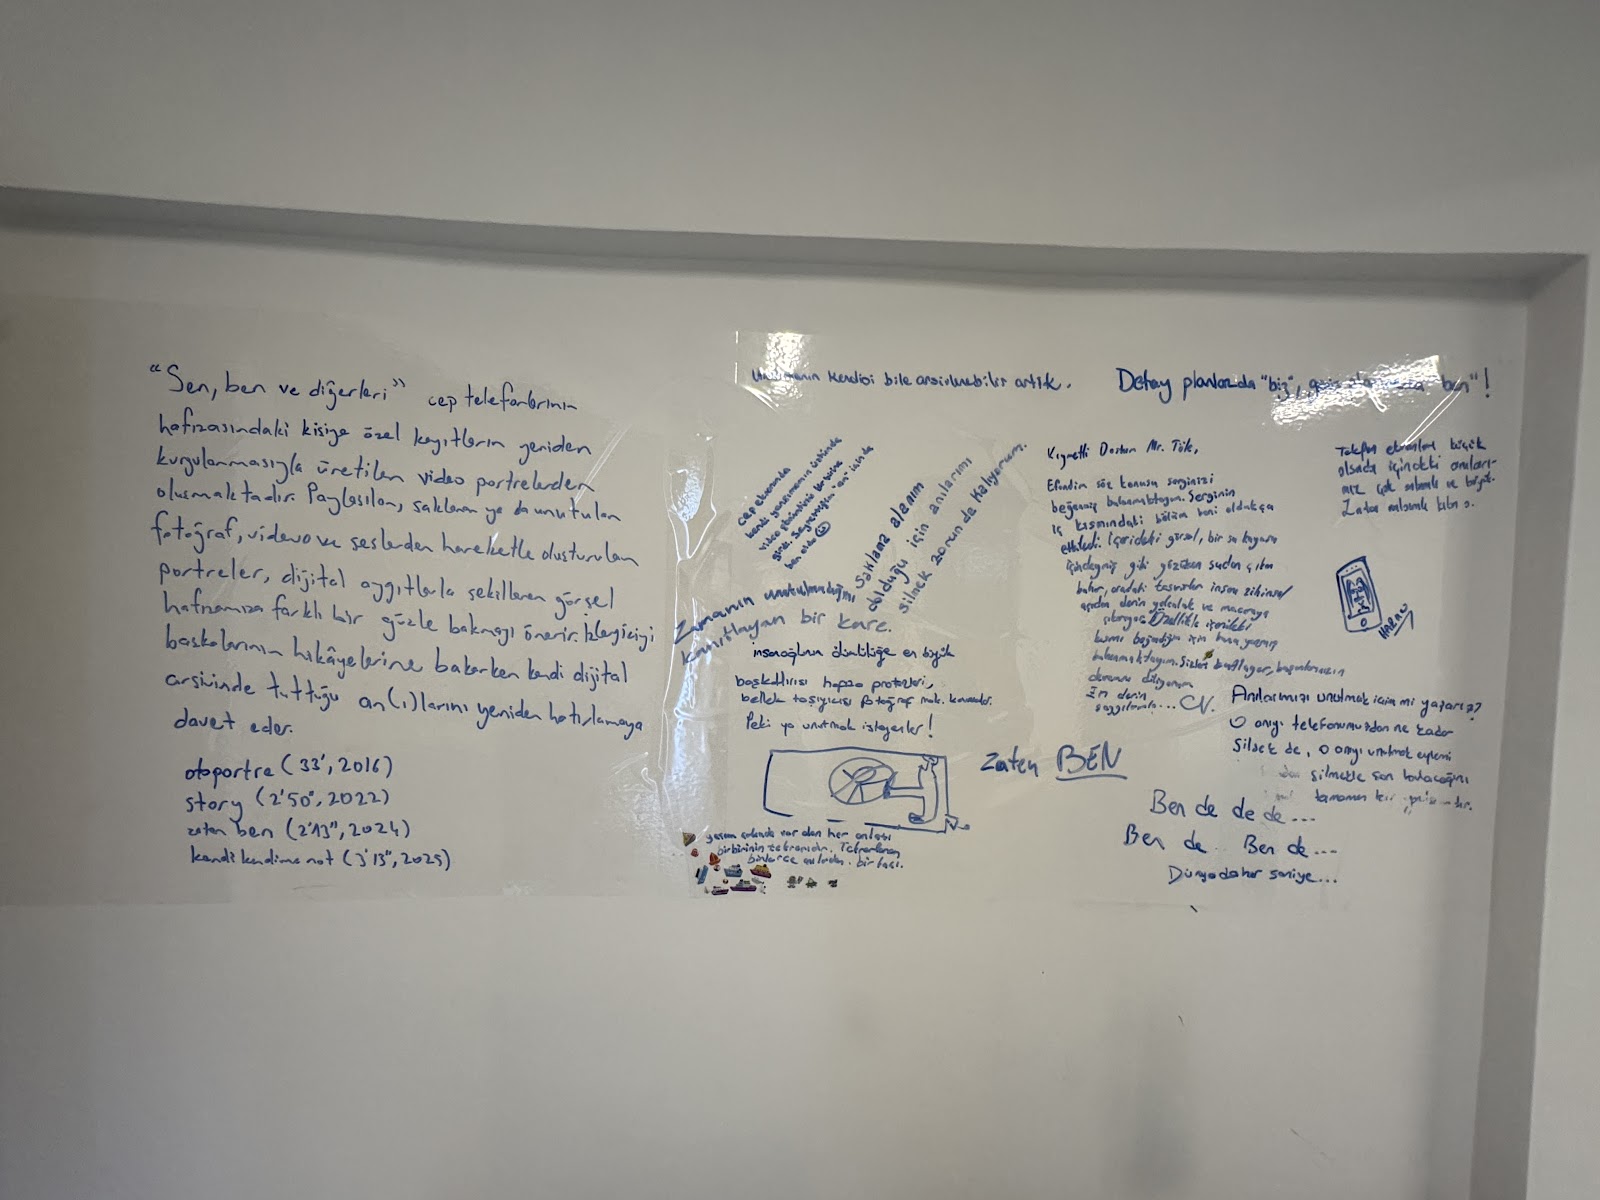 "Sen, ben ve diğerleri" cep telefonlarının
hafızasındaki kişiye özel kayıtların yeniden
kurgulanmasıyla üretilen video portrelerden
oluşmaktadır. Paylaşılan, saklanan ya da unutulan
fotoğraf, video ve seslerden hareketle oluşturulan
portreler, dijital aygıtlarla şekillenen görsel
hafızamıza farklı bir gözle bakmayı önerir. İzleyiciyi
başkalarının hikâyelerine bakarken kendi dijital
arşivinde tuttuğu an(ı)larını yeniden hatırlamaya
davet eder.
otoportre (33', 2016)
story (2'50", 2022)
zaten ben (2'13", 2024)
kendi kendime not (3'13", 2025)
Unutmanın kendisi bile arşivlenebilir artık.
Detay planlarda "biz", ben"!
cep ekranında
kendi yansımamın üstünde
video
ben oldu
Saklama alanım
dolduğu için anılarımı
silmek zorunda kalıyorum.
Zamanın unutulmadığını
kanıtlayan bir kare.
insanoğlunun ölümlülüğe en büyük
başkaldırısı hafıza protezleri,
bellek taşıyıcısı fotoğraf mak. kameralar.
Peki ya unutmak isteyenler!
yaşam var olan her anlası
birbirinin tekrarıdır. Tekrarlanan
binlerce anlardan birisi.
Kıymetli Dostum Mr. Tök,
Efendim söz konusu serginizi
beğenmiş bulunmaktayım. Serginin
iç kısmındaki bölüm beni oldukça
etkiledi. İçerideki görsel, bir su kuyusu
içindeymiş gibi gözüken sudan çıkan
buhar, oradaki tasvirler insanı zihinsel
açıdan derin yolculuk ve maceraya
çıkarıyor. Özellikle içerideki
kısmı beğendiğim için buna yazmış
bulunmaktayım. Sizleri kutluyor, başarılarınızın
devamını diliyorum
En derin
saygılarımla... CV.
Telefon ekranları küçük
olsada içindeki anıları-
mız çok anlamlı ve büyük.
Zaten anlamlı
HARAN
Anılarımızı unutmak için mi yazarız?
O anıyı telefonumuzdan ne kadar
silsek de, o anıyı unutmak eylemi
silmekle son bulacağını
tamamen bir
zaten BEN
Ben de de de...
Ben de Ben de...
Dünyada her saniye...